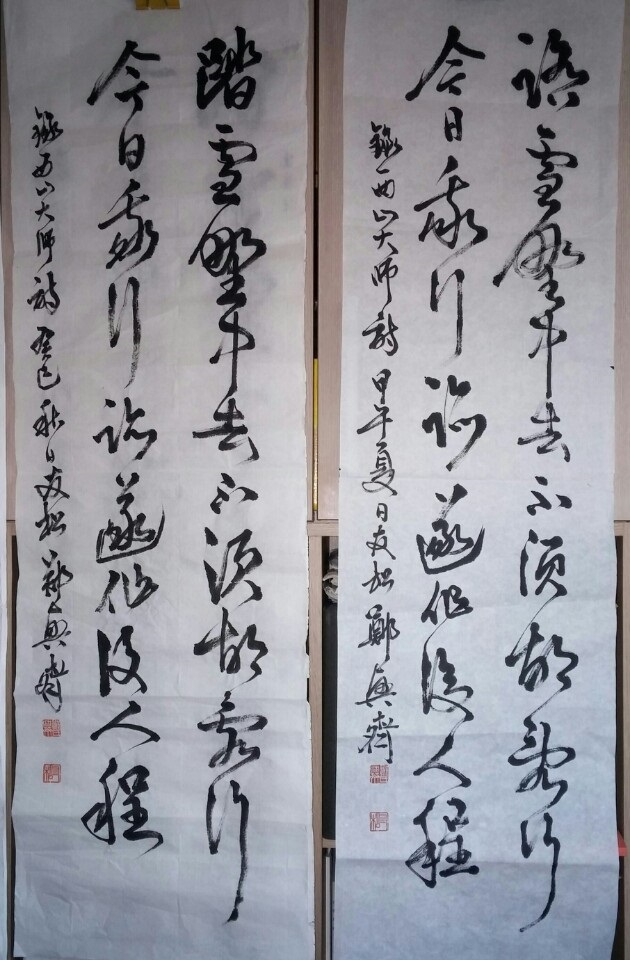 踏雪野中去不須胡亂行
今日我行跡遂作後人程
錄西山大師詩 甲午夏日友松鄭興齋
踏雪野中去不須胡亂行
今日我行跡遂作後人程
錄西山大師詩 癸巳秋日友松鄭興齋